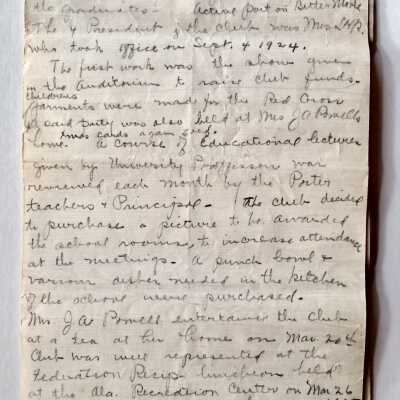 the graduates. Active part on Better Mode
The 4 President of the club was Mrs
who took office on Sept. 4 1924.
The first work was the show given
in the Auditorium to raise club funds.
Childrens
garments were made for the Red Cross
a card party was also held at Mrs J A Powells
Xmas cards again
home. A course of Educational lectures
given by University Professors was
reviewed each month by the Porter
teachers & Principal. The club decided
to purchase a picture to be awarded
the school rooms, to increase attendance
at the meetings. A punch bowl &
various dishes needed in the kitchen
of the school were purchased.
Mrs J A Powell entertained the club
at a tea at her home on Mar. 20th
Club was well represented at the
Federation Recip luncheon held
at the Ala. Recreation Center on Mar 26